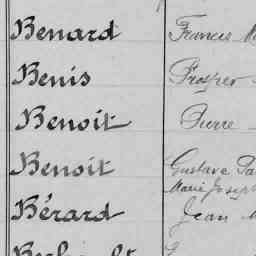 Benard Francis
Benis Prosper
Benoit Pierre
Benoit Gustave
Marie Joseph
Bérard Jean